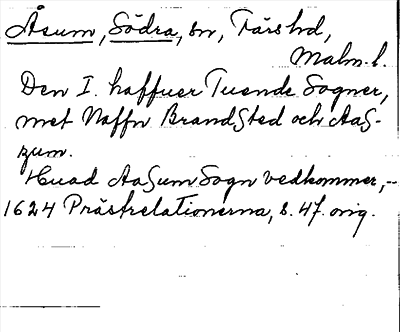 Åsum, Södra, sn, Färs hd,
Malm. l.
Den I. haffuer Tuende Sogner,
met Naffn BrandSted och AaS-
zum.
Huad AaSum Sogn vedkommer, --
1624 Prästrelationerna, s. 47. orig.